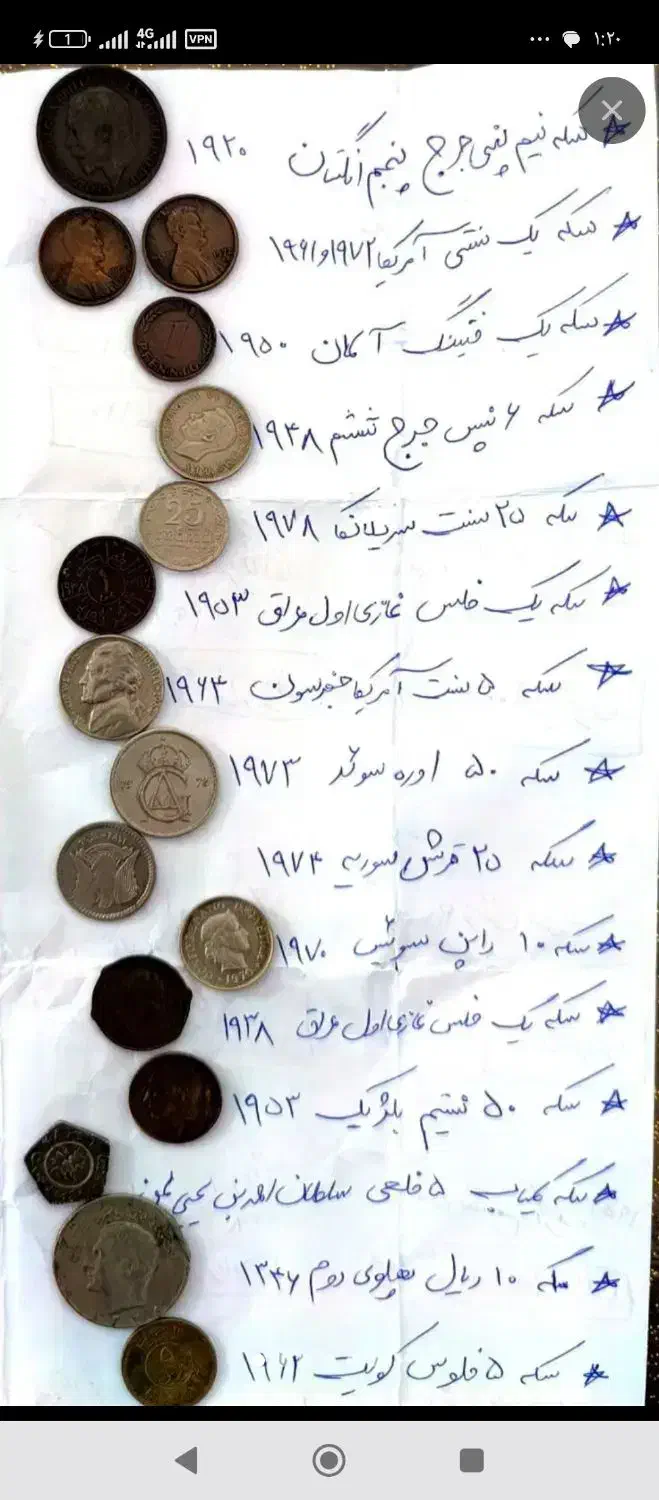 1 4G VPN ۱:۲۰
سکه نیم پنی جرج پنجم انگلستان ۱۹۲۰
سکه یک سنتی آمریکا ۱۹۷۲ و ۱۹۶۱
سکه یک فنیگ آلمان ۱۹۵۰
سکه ۶ پنس جرج ششم ۱۹۴۸
سکه ۲۵ سنت سریلانکا ۱۹۷۸
25
سکه یک فلس غازی اول عراق ۱۹۵۳
سکه ۵ سنت آمریکا جفرسون ۱۹۶۴
سکه ۵۰ اوره سوئد ۱۹۷۳
سکه ۲۵ قرش سوریه ۱۹۷۴
سکه ۱۰ راپن سوئیس ۱۹۷۰
سکه یک فلس غازی اول عراق ۱۹۳۸
سکه ۵۰ سنتیم بلژیک ۱۹۵۳
سکه کمیاب ۵ سلطان احمد بن یحیی
سکه ۱۰ ریال پهلوی دوم ۱۳۴۶
سکه ۵ فلوس کویت ۱۹۶۲